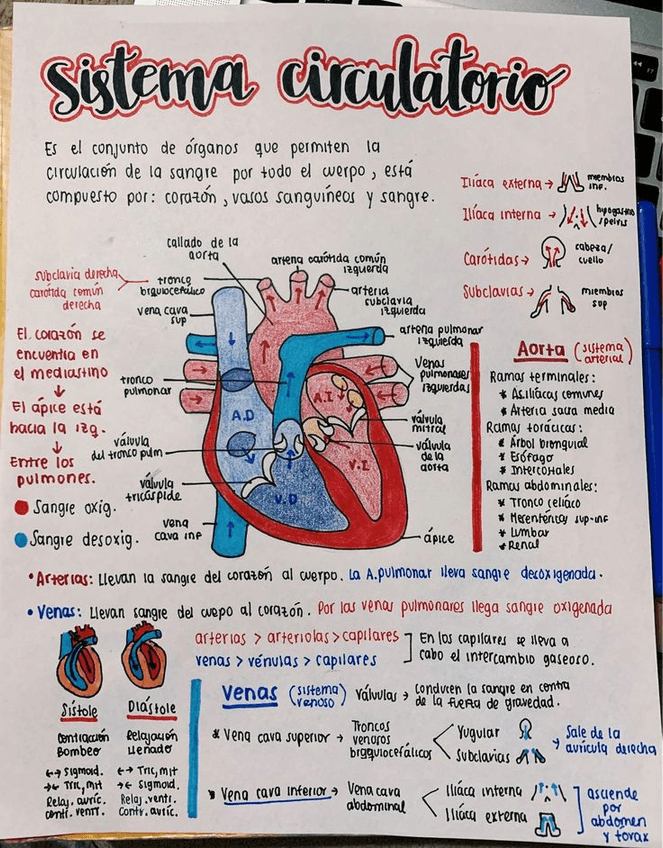 sistema circulatorio
Es el conjunto de órganos que permiten la
circulación de la sangre por todo el cuerpo, está
compuesto por: corazón, vasos sanguíneos y sangre.
Ilíaca externa → miembros
inf.
Ilíaca interna → hipogastrio
/pelvis
Carótidas → cabeza/
cuello
Subclavias → miembros
sup
callado de la
aorta
arteria carótida común
izquierda
subclavia derecha
carótida común
derecha
tronco
braquiocefálico
arteria
subclavia
izquierda
vena cava
sup
arteria pulmonar
izquierda
El corazón se
encuentra en
el mediastino
↓
El ápice está
hacia la izq.
↓
Entre los
pulmones.
tronco
pulmonar
Venas
pulmonares
izquierdas
A.D
A.I
V.D
V.I
válvula
mitral
válvula
del tronco pulm
válvula
de la
aorta
válvula
tricúspide
vena
cava inf
ápice
Sangre oxig.
Sangre desoxig.
Aorta (sistema
arterial)
Ramas terminales:
* As.ilíacas comunes
* Arteria sacra media
Ramas torácicas:
* Árbol bronquial
* Esófago
* Intercostales
Ramas abdominales:
* Tronco celíaco
* Mesentéricas sup-inf
* Lumbar
* Renal
• Arterias: Llevan la sangre del corazón al cuerpo. La A.pulmonar lleva sangre desoxigenada.
• Venas: Llevan sangre del cuepo al corazón. Por las venas pulmonares llega sangre oxigenada
arterias > arteriolas > capilares
venas > vénulas > capilares
En los capilares se lleva a
cabo el intercambio gaseoso.
Sístole
Contracción
Bombeo
←→ Sigmoid.
→← Tric, mit
Relaj. auríc.
Contr. ventr.
Diástole
Relajación
Llenado
←→ Tric, mit
→← Sigmoid.
Relaj. ventr.
Contr. auríc.
Venas (sistema
venoso)
Válvulas → Conducen la sangre en contra
de la fuerza de gravedad.
* Vena cava superior → Troncos
venosos
braquiocefálicos
Yugular
Subclavias
→ Sale de la
aurícula derecha
* Vena cava inferior → Vena cava
abdominal
Ilíaca interna
Ilíaca externa
asciende
por
abdomen
y torax